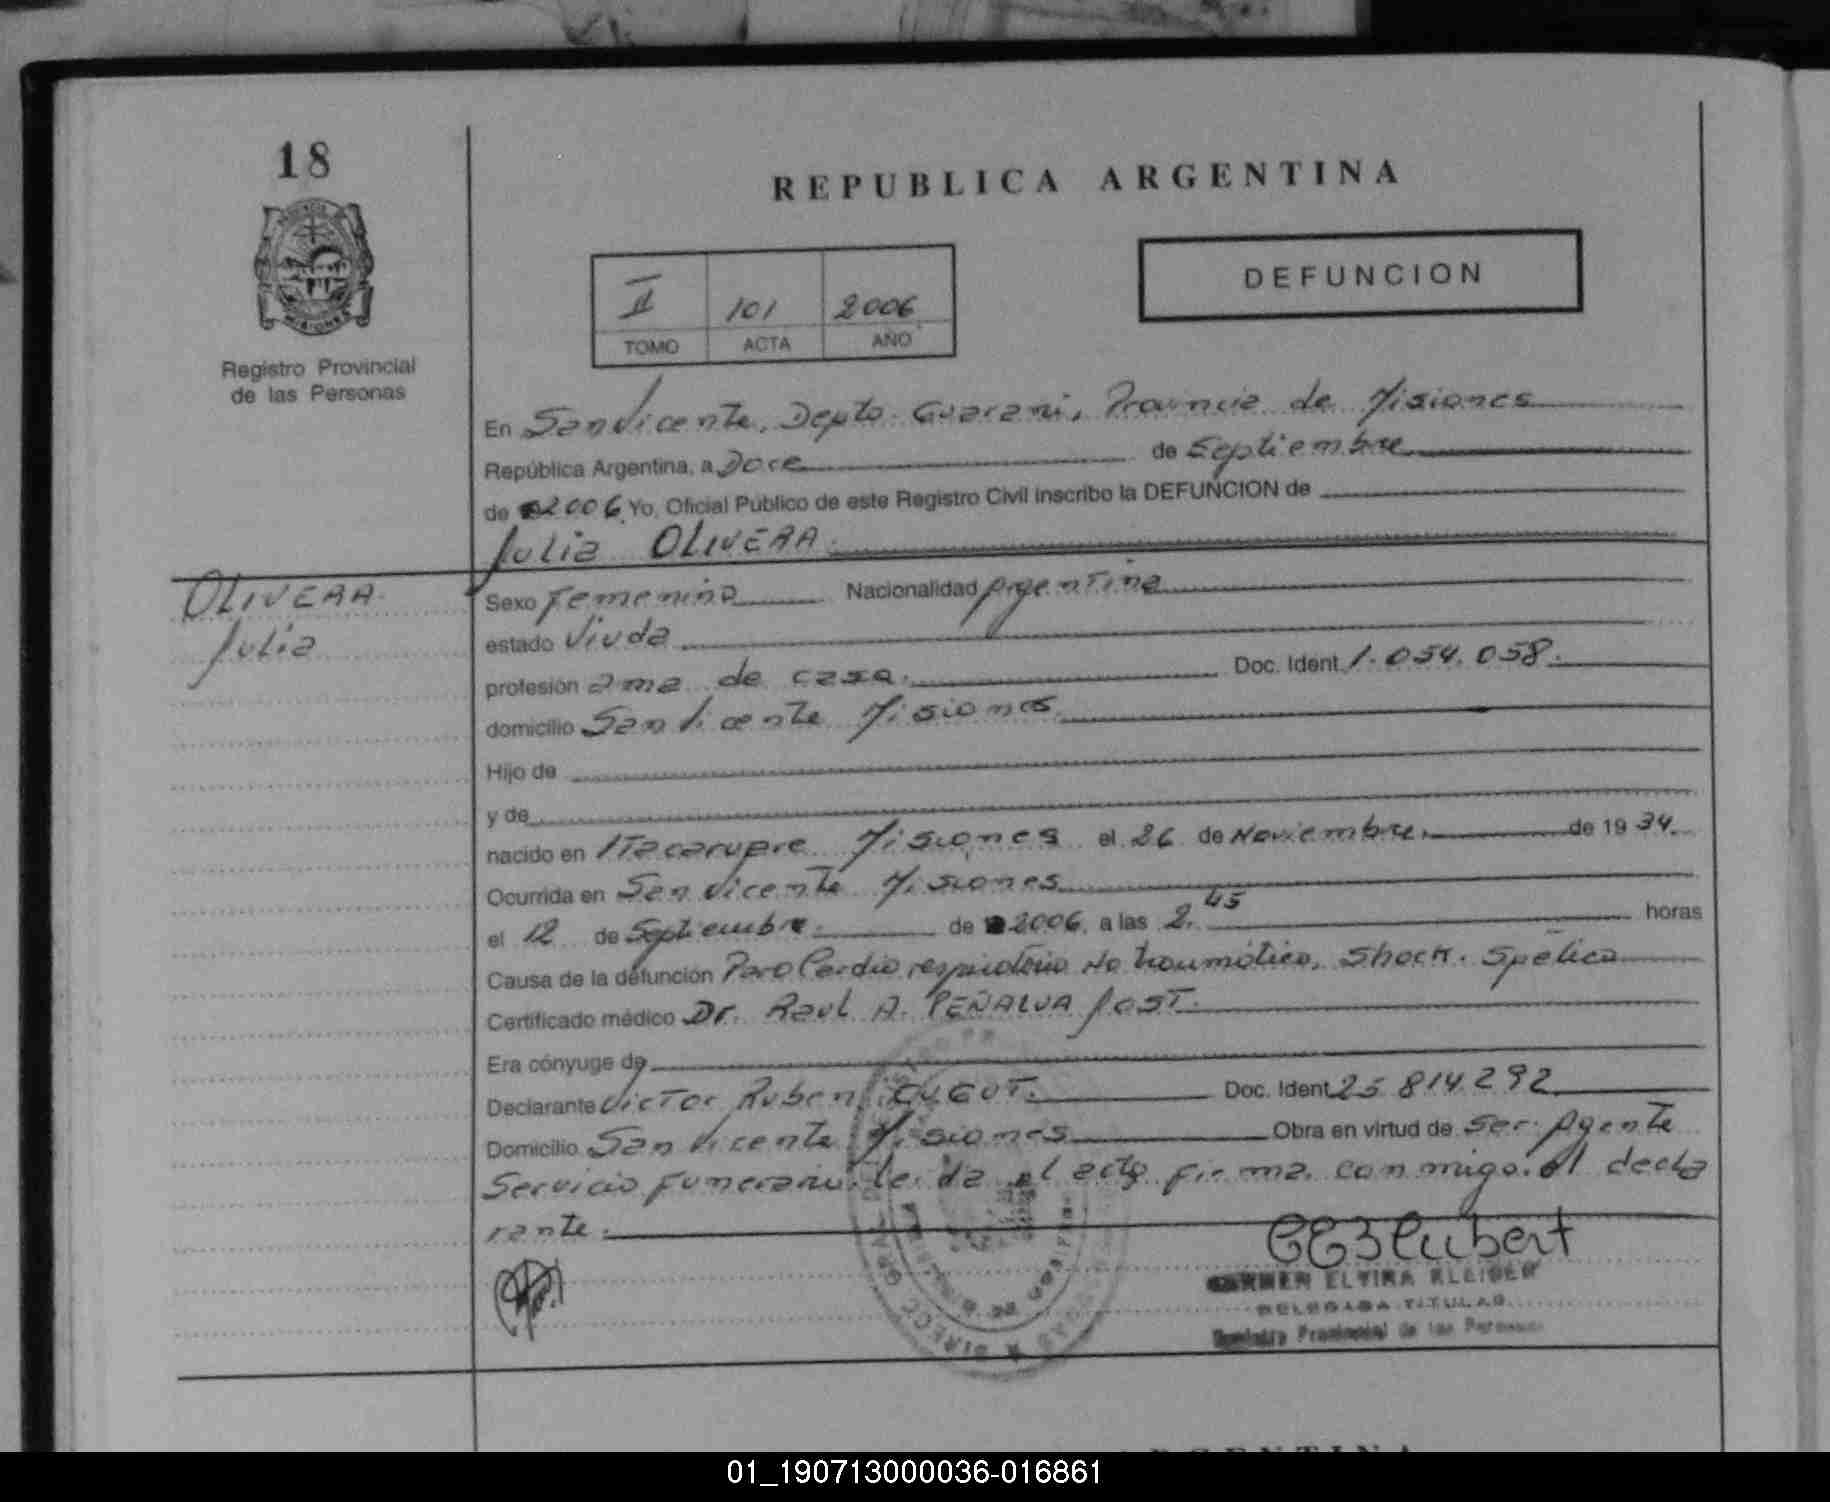 18
REPUBLICA ARGENTINA
PROVINCIA
MISIONES
Registro Provincial
de las Personas
II 101 2006
TOMO ACTA AÑO
DEFUNCION
En San Vicente, Depto. Guarani, Provincia de Misiones
República Argentina, a Doce de Septiembre
de 2006 Yo, Oficial Público de este Registro Civil inscribo la DEFUNCION de
Julia OLIVERA.
OLIVERA
Julia
Sexo Femenino Nacionalidad Argentina
estado Viuda
profesión ama de casa. Doc. Ident. 1.054.058.
domicilio San Vicente Misiones
Hijo de
y de
nacido en Itacaruare Misiones el 26 de Noviembre. de 19 34.
Ocurrida en San Vicente Misiones
el 12 de Septiembre. de 2006 a las 2.45 horas
Causa de la defunción Paro Cardio respiratorio No traumático, Shock. Spético
Certificado médico Dr. Raul A. PEÑALVA JOST.
Era cónyuge de
Declarante Victor Ruben Doc. Ident. 25 814.292
Domicilio San Vicente Misiones Obra en virtud de ser Agente
Servicio Funerario. leida el acta firma conmigo el decla
rante.
CARMEN ELVIRA
DELEGADA TITULAR
Registro Provincial de las Personas
ARGENTINA
01_190713000036-016861